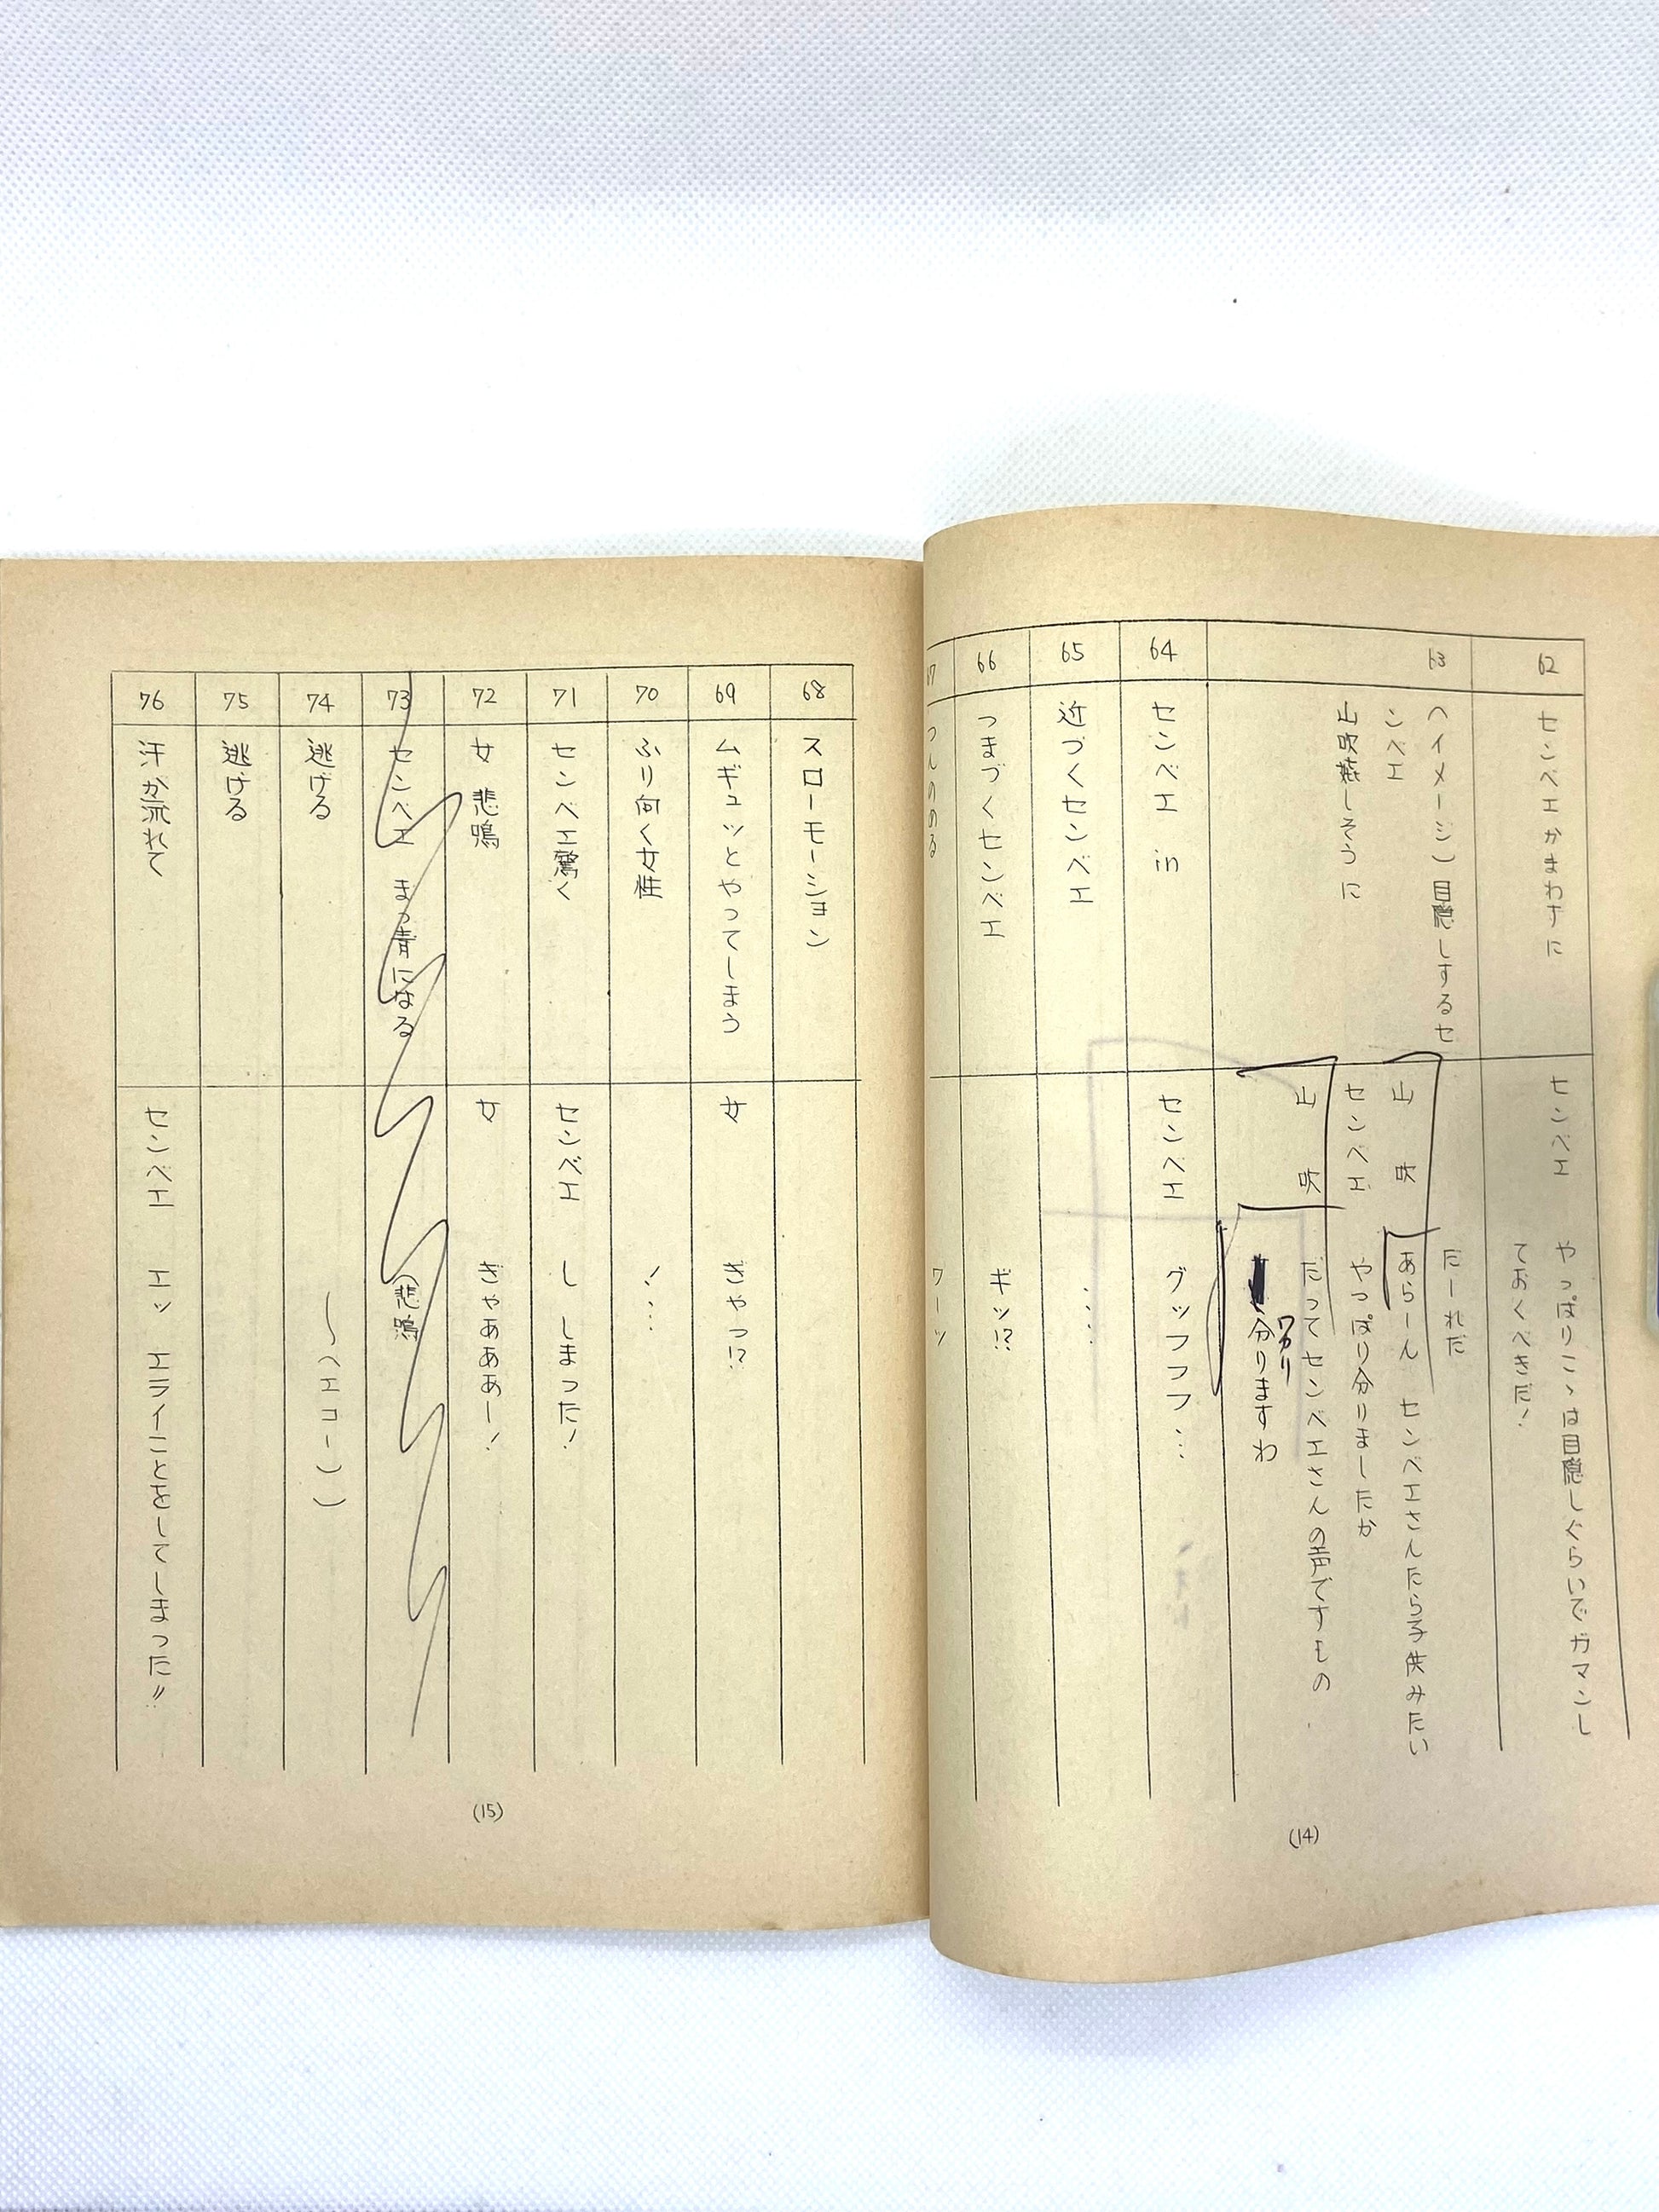 62
センベエかまわずに
センベエ　やっぱりこゝは目隠しぐらいでガマンし
ておくべきだ！
63
(イメージ) 目隠しするセ
ンベエ
山吹嬉しそうに
だーれだ
山　吹　あらーん　センベエさんたら子供みたい
センベエ　やっぱり分りましたか
山　吹　だってセンベエさんの声ですもの
ワカリ
分りますわ
64
センベエ　in
センベエ　グッフフフ…
65
近づくセンベエ
……
66
つまづくセンベエ
ギッ!?
67
つんのめる
ワーッ
(14)
68
スローモーション
69
ムギュッとやってしまう
女　ぎゃっ!?
70
ふり向く女性
！…
71
センベエ驚く
センベエ　し　しまった！
72
女　悲鳴
女　ぎゃあああー！
73
センベエ　まっ青になる
(悲鳴
74
逃げる
〜(エコー))
75
逃げる
76
汗が流れて
センベエ　エッ　エライことをしてしまった!!
(15)